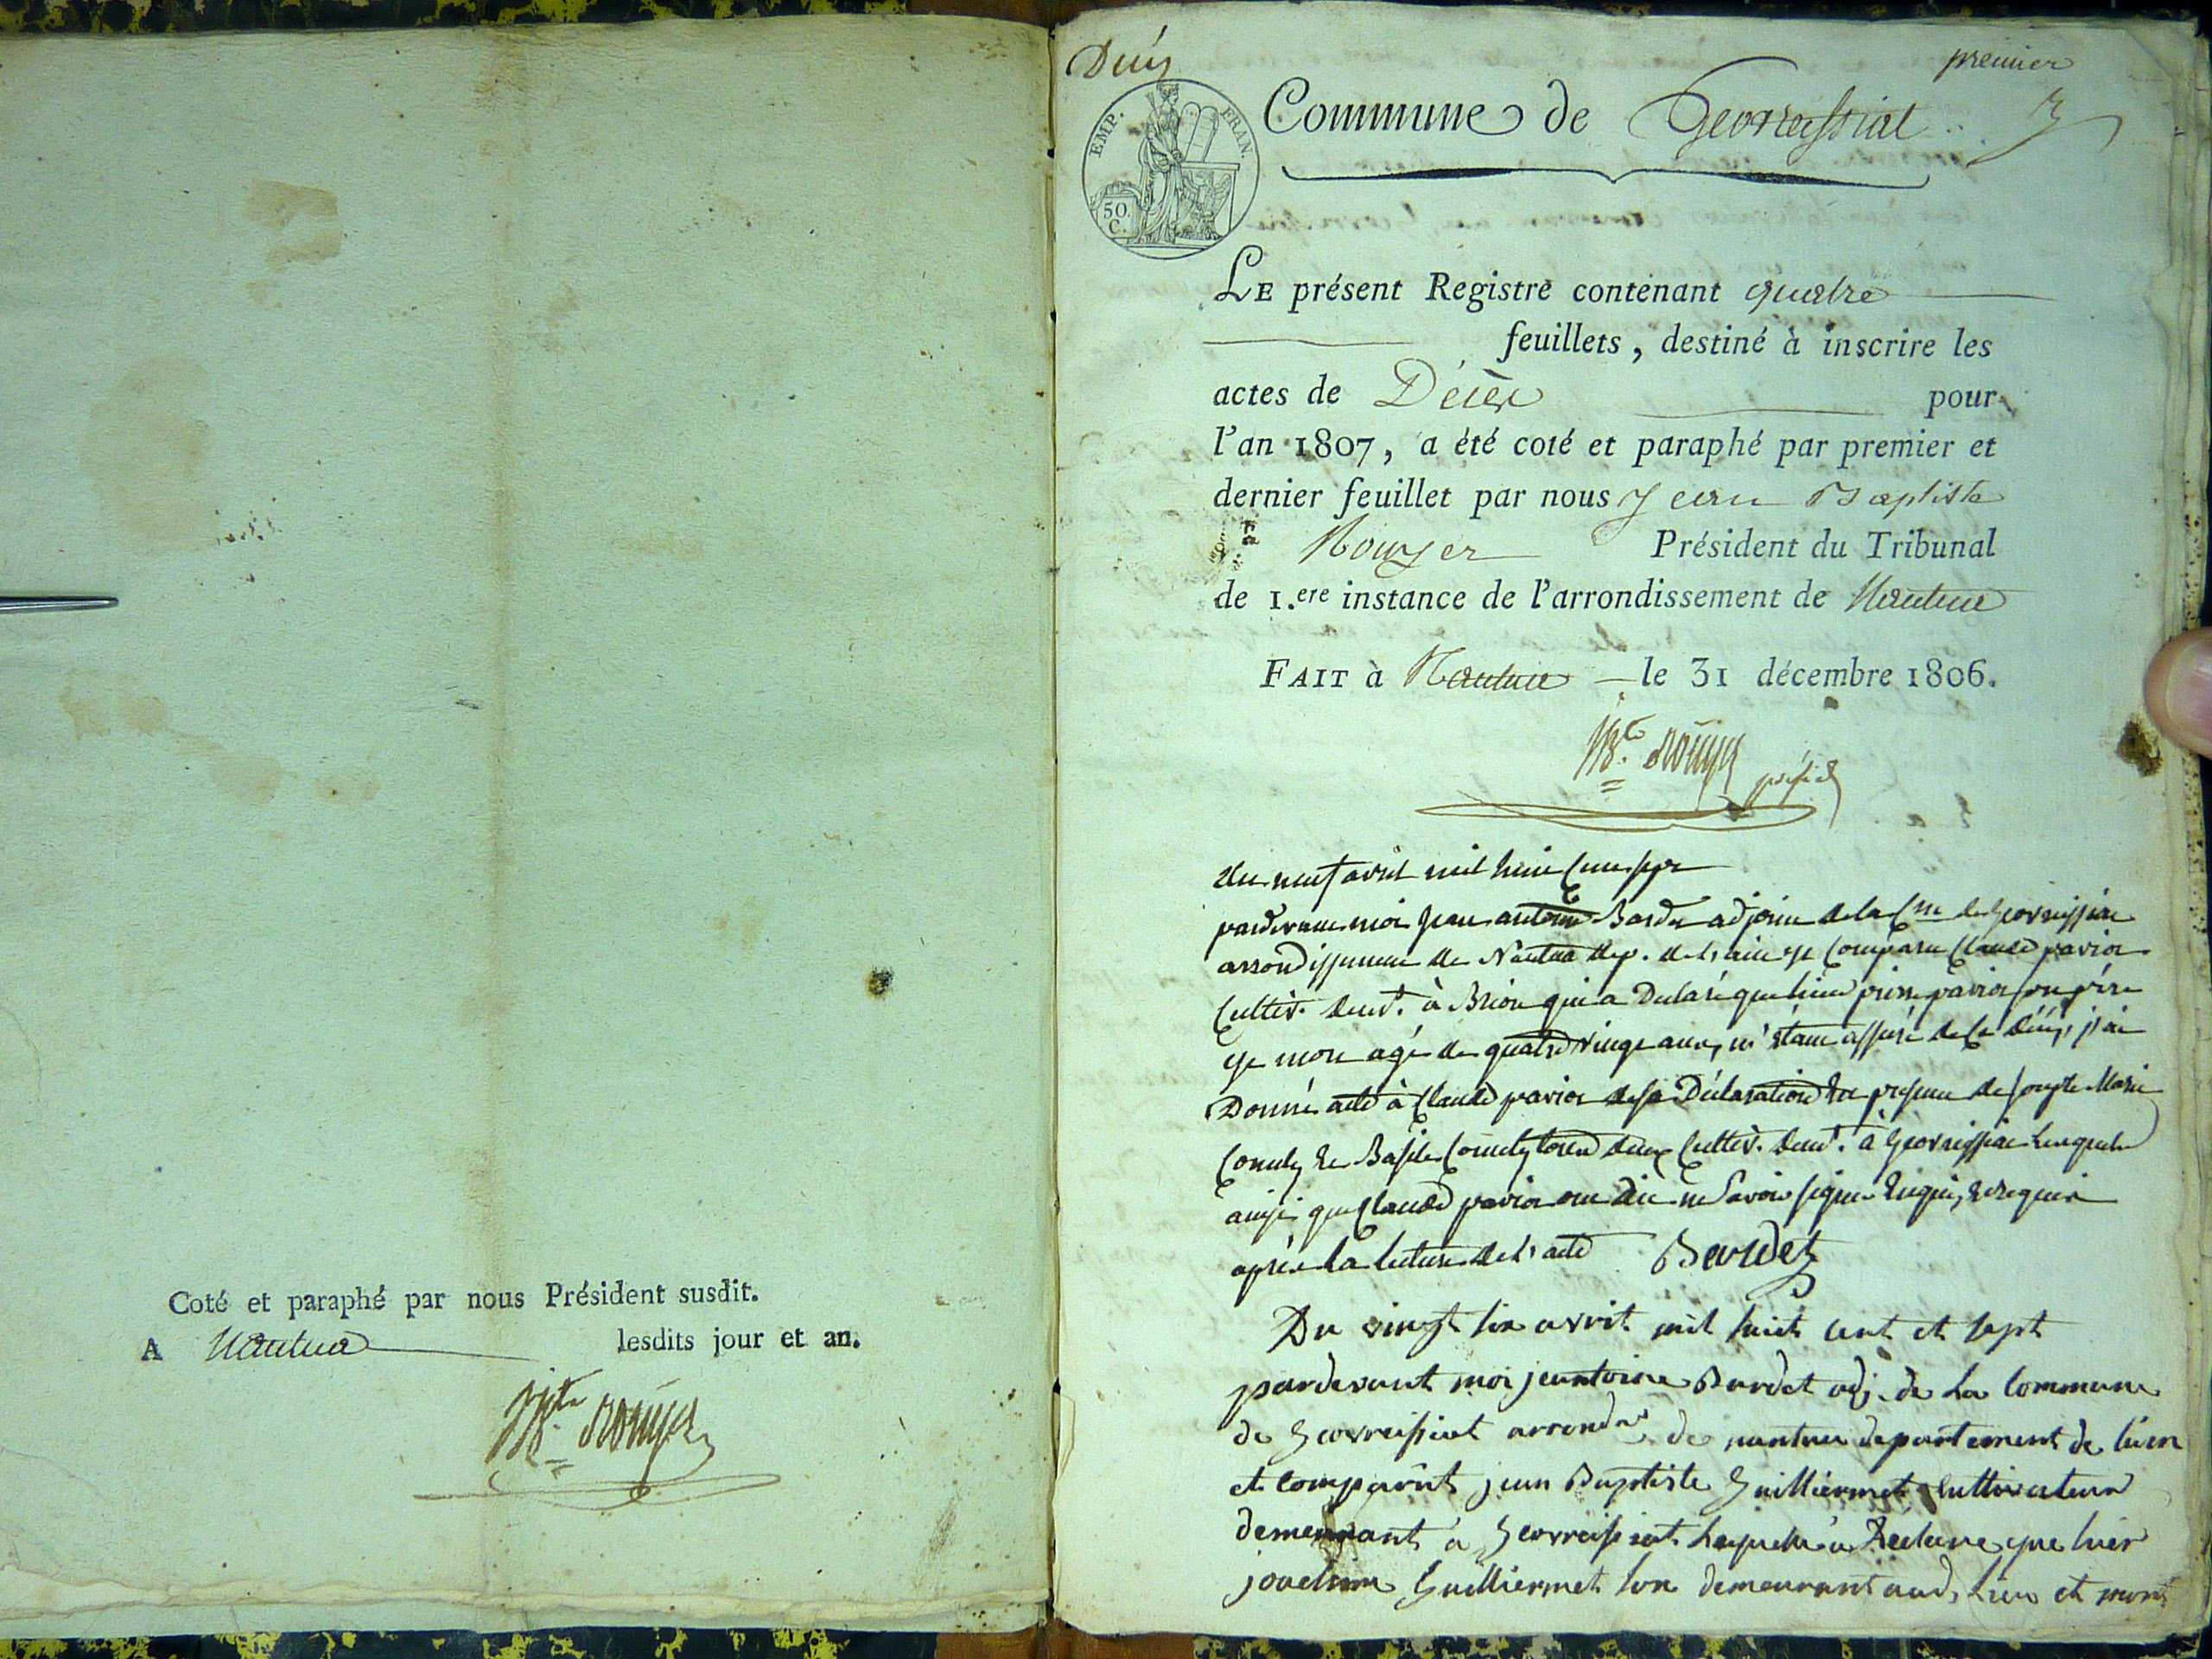 Coté et paraphé par nous Président susdit.
A Nantua lesdits jour et an.
Jn Bte Rouyer
premier
EMP. FRAN.
50. C.
Commune de Gevressiat
LE présent Registre contenant quatre
feuillets, destiné à inscrire les
actes de Décès pour
l'an 1807, a été coté et paraphé par premier et
dernier feuillet par nous Jean Baptiste
Rouyer Président du Tribunal
de 1.ere instance de l'arrondissement de Nantua
FAIT à Nantua le 31 décembre 1806.
JBte Rouyer présid
du neuf avril mil huit cent sept
pardevant moi Jean antoine Bardet adjoint de la Cne de Geovreissiat
arrondissement de Nantua dep. de l'ain est comparu Claude pavion
Cultiv. demt. à Brion qui a Declaré que hier pierre pavion son père
est mort agé de quatre vingt ans, m'étant assuré de ce décès, j'ai
Donné acte à Claude pavion de sa Déclaration en presence de Joseph Marie
et Basile tous deux Cultiv. demt. à Geovreissiat lesquels
ainsi que Claude pavion ont dit ne Savoir signer enquis, et requis
après la lecture de l'acte Bardet
Du vingt six avril mil huit cent et sept
pardevant moi jeantoine Bardet adj. de la Commune
de Geovreissiat arrondt de nantua departement de lain
et comparut jean Baptiste Guilliermet Cultivateur
demeurant à Geovreissiat lequelle a declaré que hier
joachim Guilliermet son demeurant aud. lieu et mort